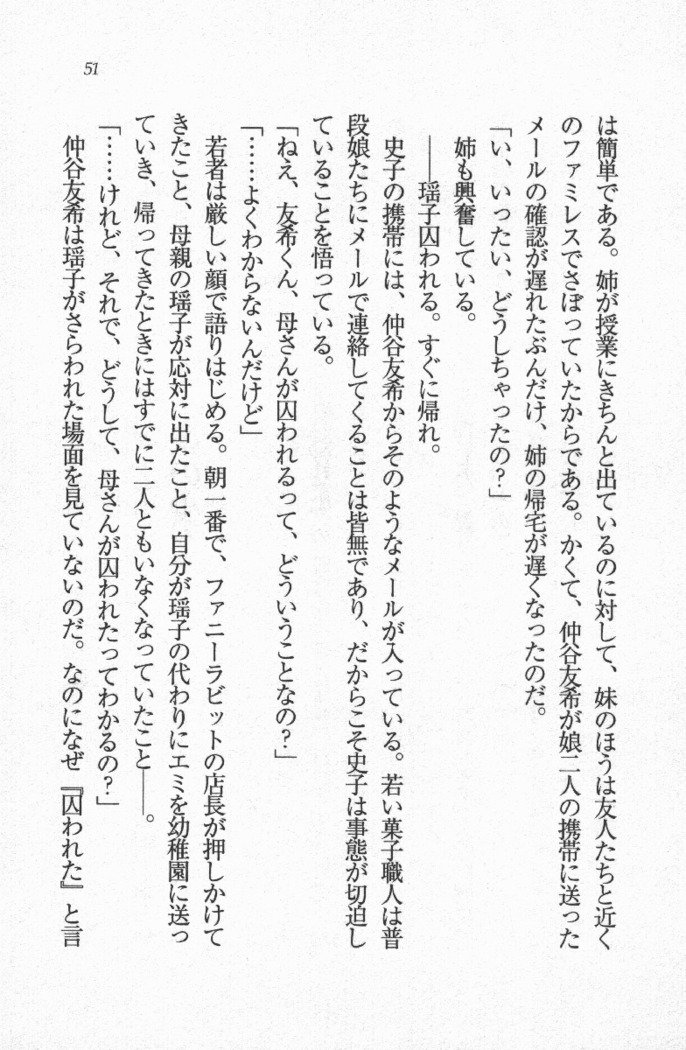 51
は簡単である。姉が授業にきちんと出ているのに対して、妹のほうは友人たちと近く
のファミレスでさぼっていたからである。かくて、仲谷友希が娘二人の携帯に送った
メールの確認が遅れたぶんだけ、姉の帰宅が遅くなったのだ。
「い、いったい、どうしちゃったの？」
姉も興奮している。
――瑶子囚われる。すぐに帰れ。
史子の携帯には、仲谷友希からそのようなメールが入っている。若い菓子職人は普
段娘たちにメールで連絡してくることは皆無であり、だからこそ史子は事態が切迫し
ていることを悟っている。
「ねえ、友希くん、母さんが囚われるって、どういうことなの？」
「……よくわからないんだけど」
若者は厳しい顔で語りはじめる。朝一番で、ファニーラビットの店長が押しかけて
きたこと、母親の瑶子が応対に出たこと、自分が瑶子の代わりにエミを幼稚園に送っ
ていき、帰ってきたときにはすでに二人ともいなくなっていたこと――。
「……けれど、それで、どうして、母さんが囚われたってわかるの？」
仲谷友希は瑶子がさらわれた場面を見ていないのだ。なのになぜ『囚われた』と言